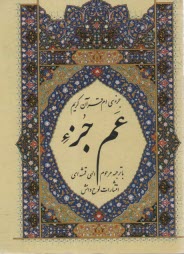 جزء سی ام قرآن کریم
عم جزء
با ترجمه مرحوم الهی قمشه ای
انتشارات